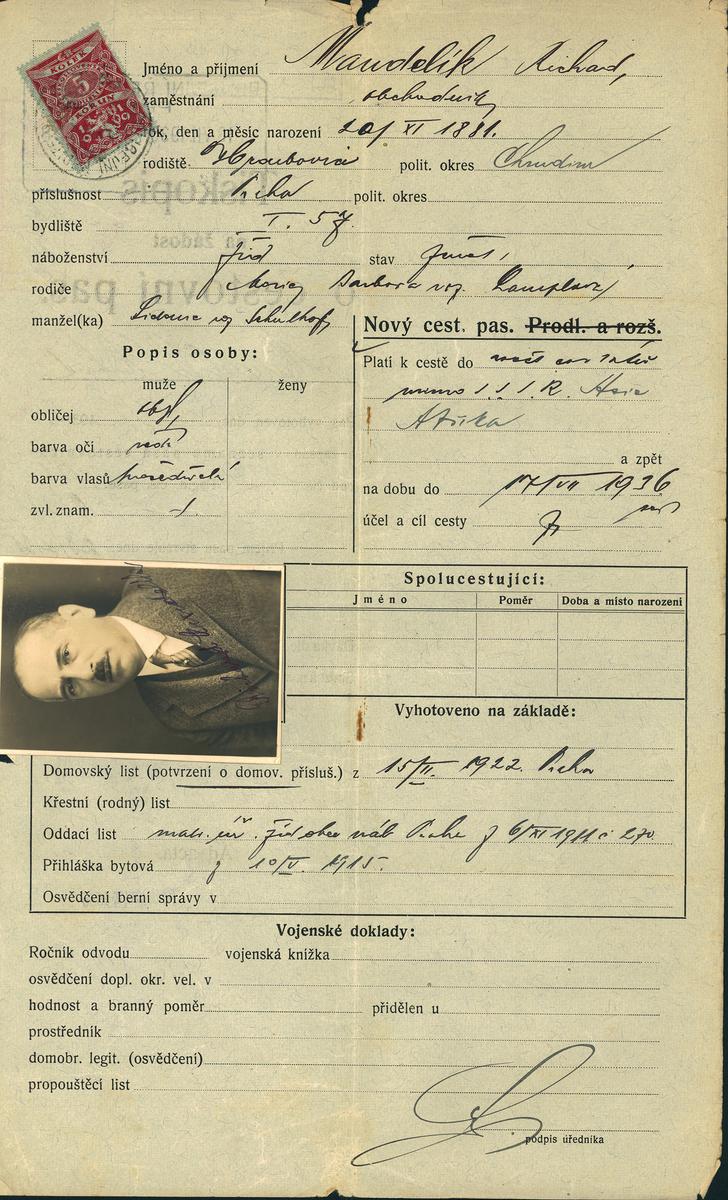 KOLEK
5
KORUN
1919
Jméno a příjmení Mandelík Richard,
zaměstnání obchodník
rok, den a měsíc narození 20/XI 1881.
rodiště Hroubovice polit. okres Chrudim
příslušnost Praha polit. okres
bydliště I. 57
náboženství žid stav ženat,
rodiče Moriz Barbora roz.
manžel(ka) Sidonie roz Schulhof
Nový cest. pas. Prodl. a rozš.
Popis osoby:
muže ženy
obličej obl,
barva očí
barva vlasů prošedivělé
zvl. znam. -/.
Platí k cestě do
mimo S.S.S.R. Asie
Afrika
a zpět
na dobu do 17/VII 1936
účel a cíl cesty
Spolucestující:
Jméno Poměr Doba a místo narození
Vyhotoveno na základě:
Domovský list (potvrzení o domov. přísluš.) z 15/II. 1922. Praha
Křestní (rodný) list
Oddací list mat. úř. žid obce náb Praha z 6/XI 1911 č 270.
Přihláška bytová z 10/V. 1915.
Osvědčení berní správy v
Vojenské doklady:
Ročník odvodu vojenská knížka
osvědčení dopl. okr. vel. v
hodnost a branný poměr přidělen u
prostředník
domobr. legit. (osvědčení)
propouštěcí list
podpis úředníka